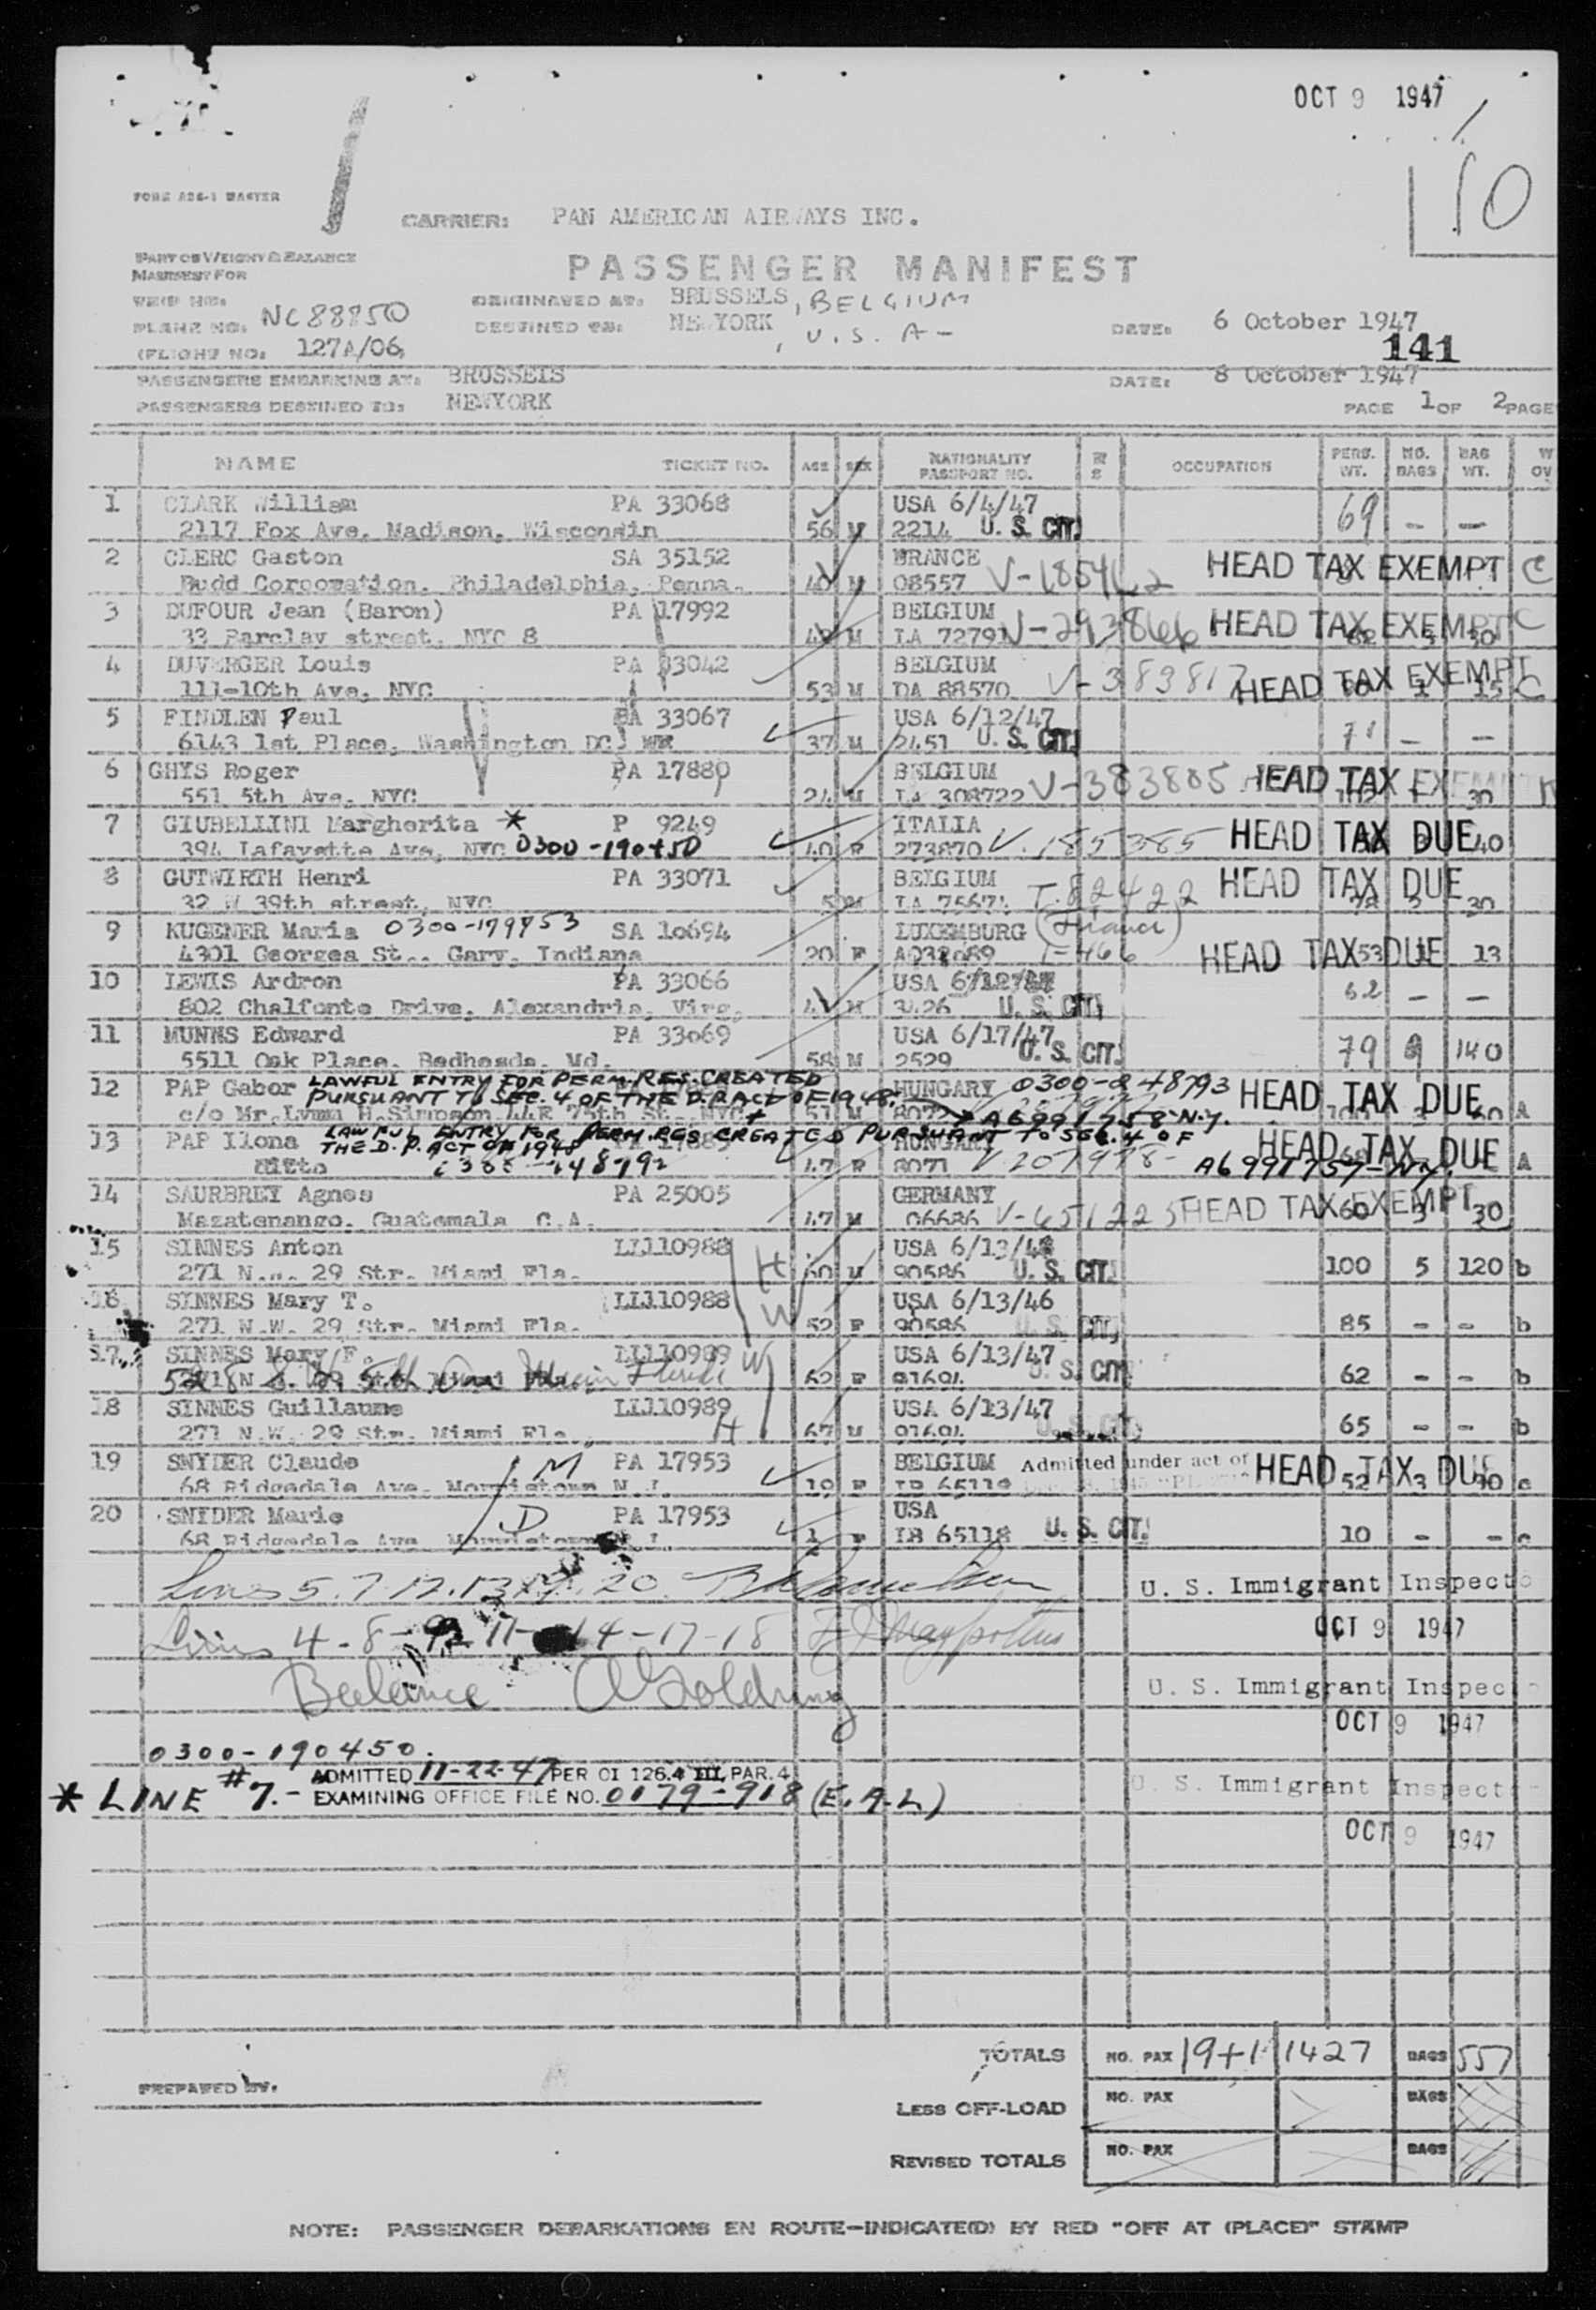 OCT 9 1947
10
FORM AD6-1 MASTER
CARRIER: PAN AMERICAN AIRWAYS INC.
PART OF WEIGHT & BALANCE
MANIFEST FOR
PASSENGER MANIFEST
TRIP NO:
PLANE NO. NC88850
(FLIGHT NO: 127A/06
ORIGINATED AT: BRUSSELS, BELGIUM
DESTINED TO: NEW YORK, U.S.A-
DATE: 6 October 1947
141
PASSENGERS EMBARKING AT: BRUSSELS
DATE: 8 October 1947
PASSENGERS DESTINED TO: NEWYORK
PAGE 1 OF 2 PAGE
NAME TICKET NO. AGE SEX NATIONALITY PASSPORT NO. OCCUPATION PERS. WT. NO. BAGS BAG WT.
1 CLARK William PA 33068 USA 6/4/47 69 - -
2117 Fox Ave, Madison, Wisconsin 56 M 2214 U. S. CIT.
2 CLERC Gaston SA 35152 FRANCE HEAD TAX EXEMPT C
Budd Corporation, Philadelphia, Penna. 40 M 08557
3 DUFOUR Jean (Baron) PA 17992 BELGIUM HEAD TAX EXEMPT C
33 Barclay street, NYC 8 M LA 72791 V-293866
4 DUVERGER Louis PA 33042 BELGIUM HEAD TAX EXEMPT
111-10th Ave, NYC 53 M DA 88570 V-383817 15 C
5 FINDLEN Paul PA 33067 USA 6/12/47 71 - -
6143 1st Place, Washington DC 37 M 2451 U. S. CIT.
6 GHYS Roger PA 17880 BELGIUM V-383805 HEAD TAX EXEMPT
551 5th Ave, NYC 24 M LA 308722 30
7 GIUBELLINI Margherita * P 9249 ITALIA HEAD TAX DUE
394 Lafayette Ave, NYC 0300-190450 40 F 273870 V. 185385 40
8 GUTWIRTH Henri PA 33071 BELGIUM HEAD TAX DUE
32 W 39th street, NYC M LA 75674 T.82422 30
9 KUGENER Maria 0300-179753 SA 10694 LUXEMBURG
4301 Georgea St., Gary, Indiana 20 F HEAD TAX DUE 53 13
10 LEWIS Ardron PA 33066 USA 62 - -
802 Chalfonte Drive, Alexandria, Virg. M 3426 U. S. CIT.
11 MUNNS Edward PA 33069 USA 6/17/47 79 9 140
5511 Oak Place, Bedhesda, Md. 58 M 2529 U. S. CIT.
12 PAP Gabor LAWFUL ENTRY FOR PERM. RES. CREATED HUNGARY 0300-248793 HEAD TAX DUE
PURSUANT TO SEC. 4 OF THE D.P. ACT OF 1948.
c/o Mr. Lyman H. Simpson 44E 75th St. NYC 51 M A6991758-N.Y. A
13 PAP Ilona LAWFUL ENTRY FOR PERM. RES CREATED PURSUANT TO SEC. 4 OF
THE D.P. ACT OF 1948 HUNGARY HEAD TAX DUE
ditto 47 F 8071 V 207978- A6991757-NY. A
14 SAURBREY Agnes PA 25005 GERMANY
Mazatenango, Guatemala C.A. 47 06686 HEAD TAX EXEMPT 60 3 30
15 SINNES Anton LL110988 H USA 6/13/46
271 N.W. 29 Str. Miami Fla. 60 M 90586 U. S. CIT. 100 5 120 b
16 SINNES Mary T. LL110988 W USA 6/13/46
271 N.W. 29 Str. Miami Fla. 52 F 90586 U. S. CIT. 85 - - b
17 SINNES Mary F. LL110989 W USA 6/13/47
62 F 91694 U. S. CIT. 62 - - b
18 SINNES Guillaume LL110989 USA 6/13/47
271 N.W. 29 Str. Miami Fla. H 67 M 91694 U. S. CIT. 65 - - b
19 SNYDER Claude M PA 17953 BELGIUM Admitted under act of HEAD TAX DUE
68 Ridgedale Ave. Morristown N.J. 19 F 52 3 90 c
20 SNYDER Marie D PA 17953 USA
68 Ridgedale Ave Morristown N.J. 1 F LB 65118 U. S. CIT. 10 - - c
Lines 5.7.12.13.19.20
U. S. Immigrant Inspecto
OCT 9 1947
Lines 4-8-9-11-14-17-18
U. S. Immigrant Inspec
Balance A Goldring
OCT 9 1947
0300-190450.
ADMITTED 11-22-47 PER OI 126.4 III, PAR. 4
U. S. Immigrant Inspect
* LINE #7.- EXAMINING OFFICE FILE NO. 0179-918 (E.A.L)
OCT 9 1947
TOTALS NO. PAX 19+1 1427 BAGS 557
PREPARED BY:
LESS OFF-LOAD NO. PAX BAGS
REVISED TOTALS NO. PAX BAGS
NOTE: PASSENGER DEBARKATIONS EN ROUTE-INDICATE(D) BY RED "OFF AT (PLACE)" STAMP